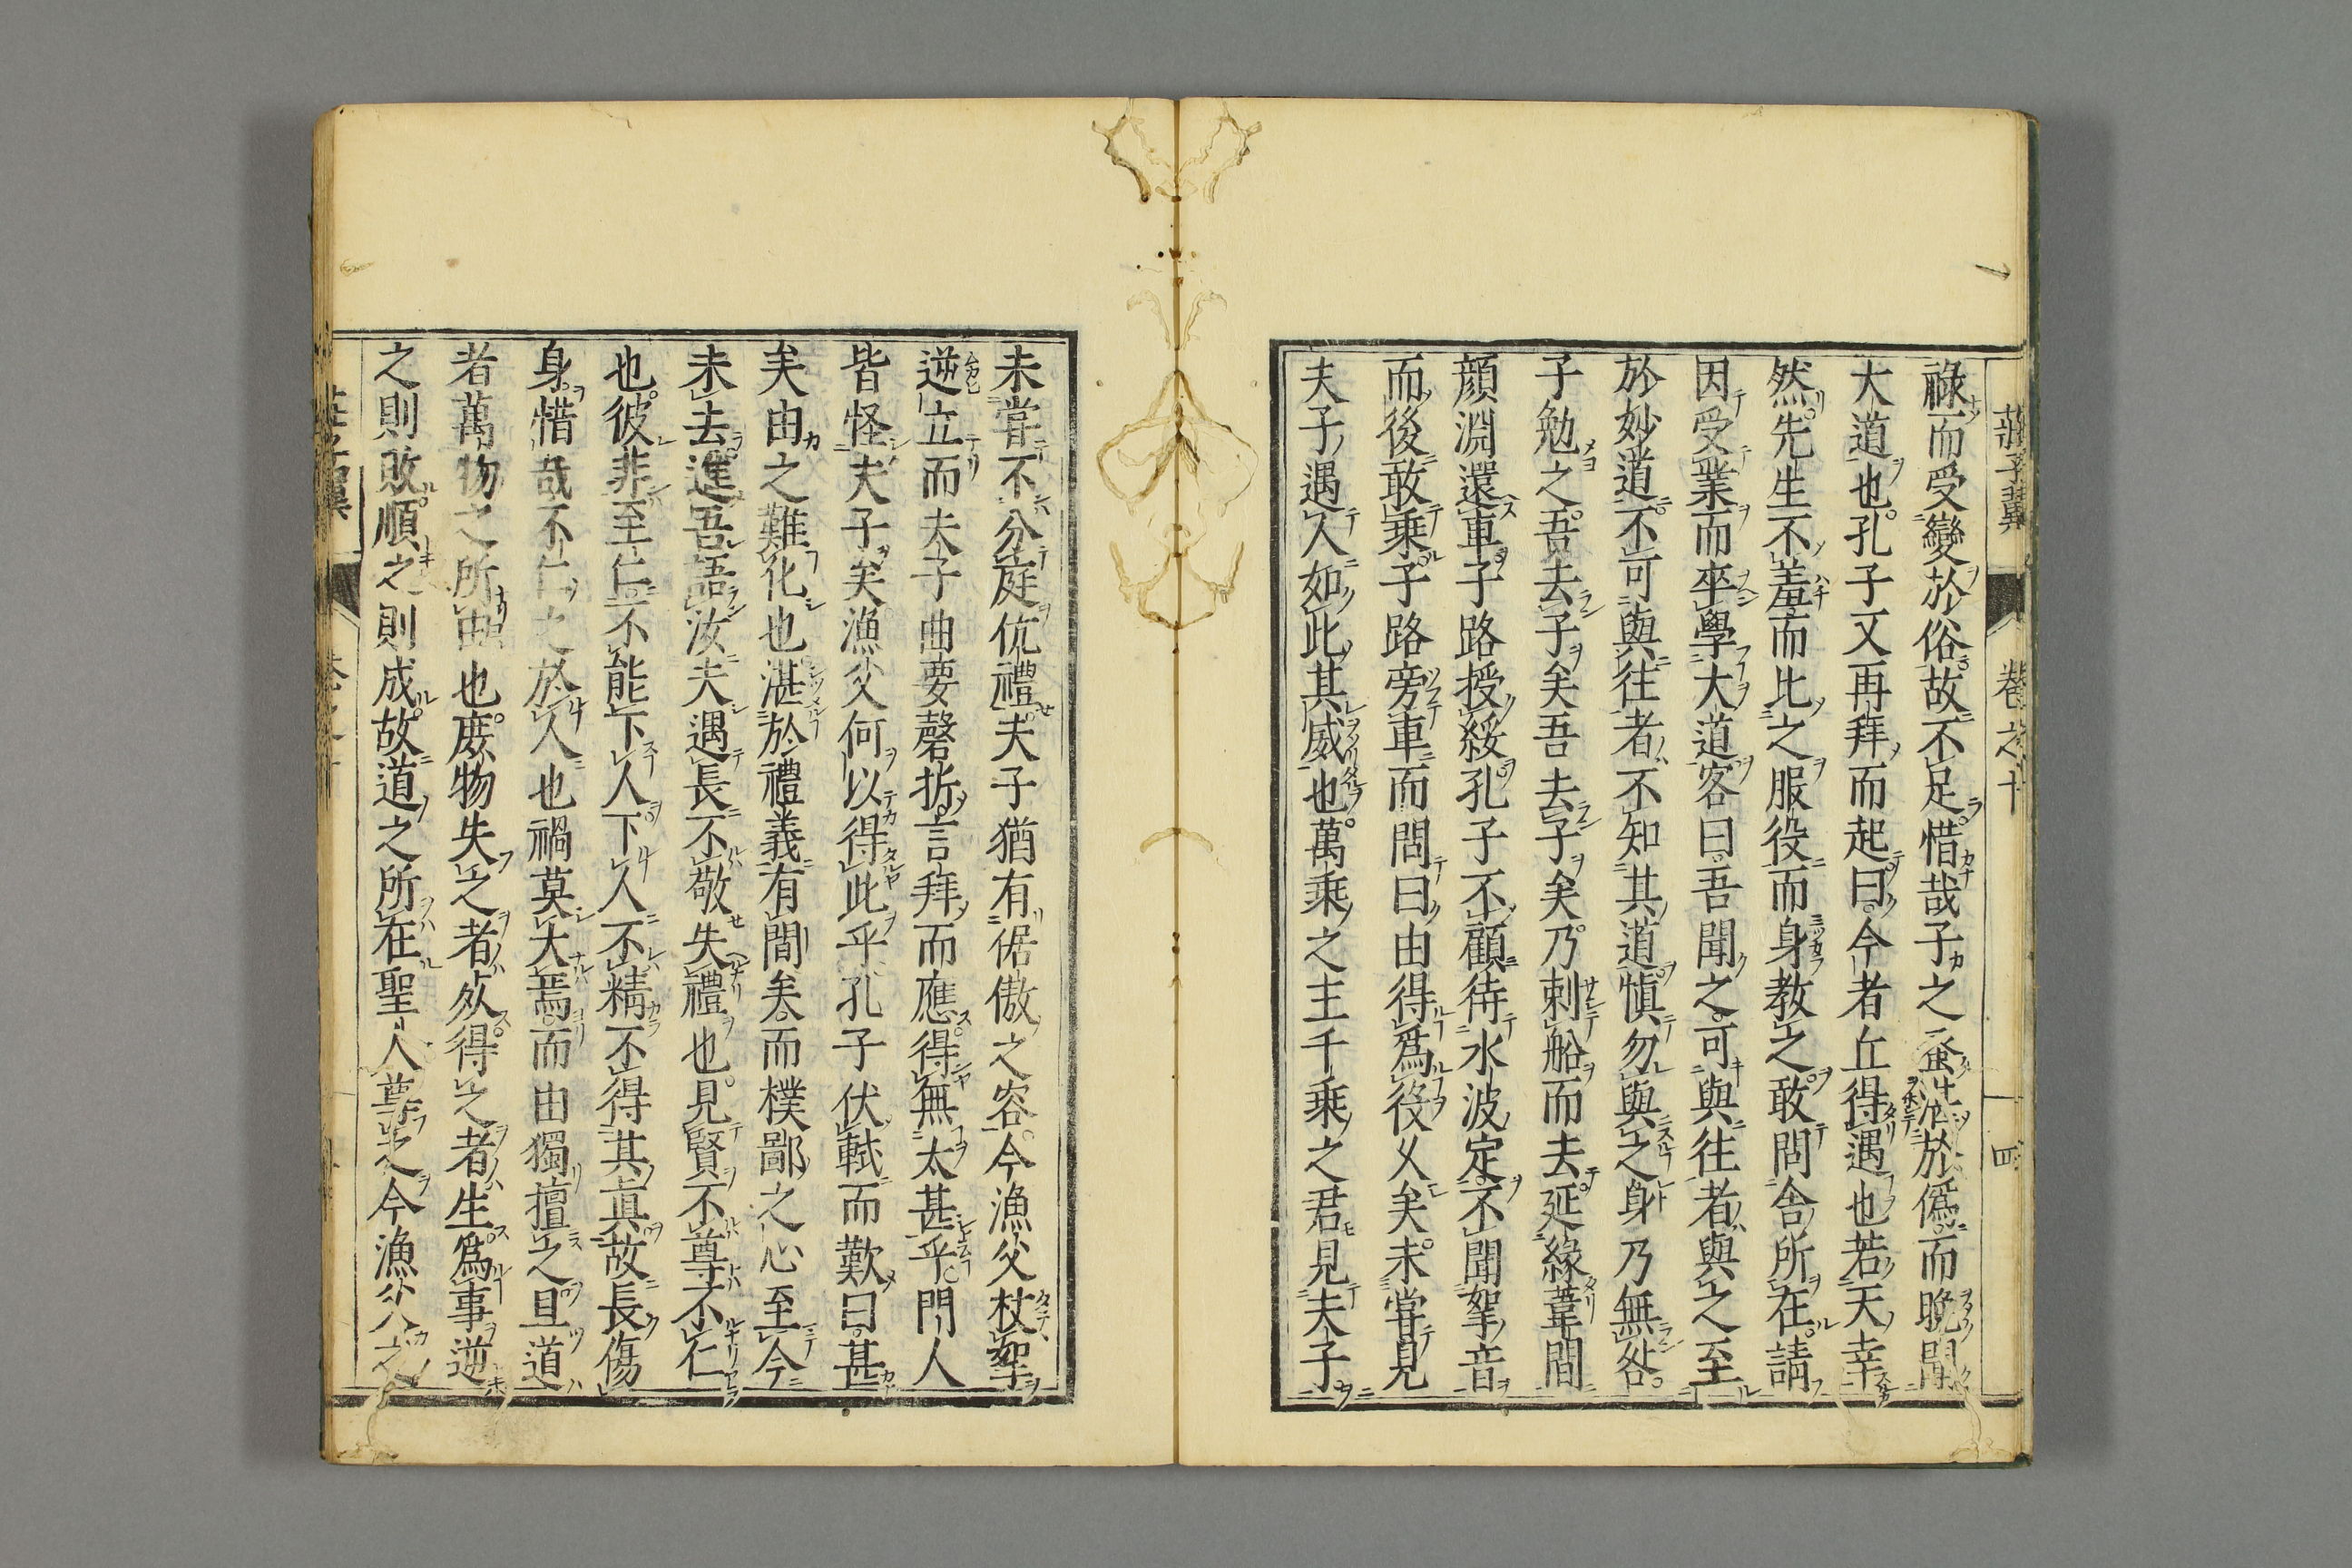 莊子翼 卷之十 四
祿而受變於俗故不足惜哉子之蚤湛於僞而晚聞
大道也孔子又再拜而起曰今者丘得遇也若天幸
然先生不羞而比之服役而身教之敢問舍所在請
因受業而卒學大道客曰吾聞之可與往者與之至
於妙道不可與往者不知其道愼勿與之身乃無咎
子勉之吾去子矣吾去子矣乃刺船而去延緣葦間
顔淵還車子路授綏孔子不顧待水波定不聞拏音
而後敢乘子路旁車而問曰由得爲役久矣未嘗見
夫子遇人如此其威也萬乘之主千乘之君見夫子
未嘗不分庭伉禮夫子猶有倨傲之容今漁父杖拏
逆立而夫子曲要磬折言拜而應得無太甚乎門人
皆怪夫子矣漁父何以得此乎孔子伏軾而歎曰甚
矣由之難化也湛於禮義有間矣而樸鄙之心至今
未去進吾語汝夫遇長不敬失禮也見賢不尊不仁
也彼非至仁不能下人下人不精不得其眞故長傷
身惜哉不仁之於人也禍莫大焉而由獨擅之且道
者萬物之所由也庶物失之者死得之者生爲事逆
之則敗順之則成故道之所在聖人尊之今漁父之